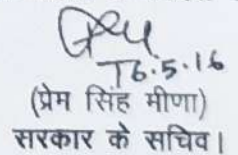 16.5.16
(प्रेम सिंह मीणा)
सरकार के सचिव।